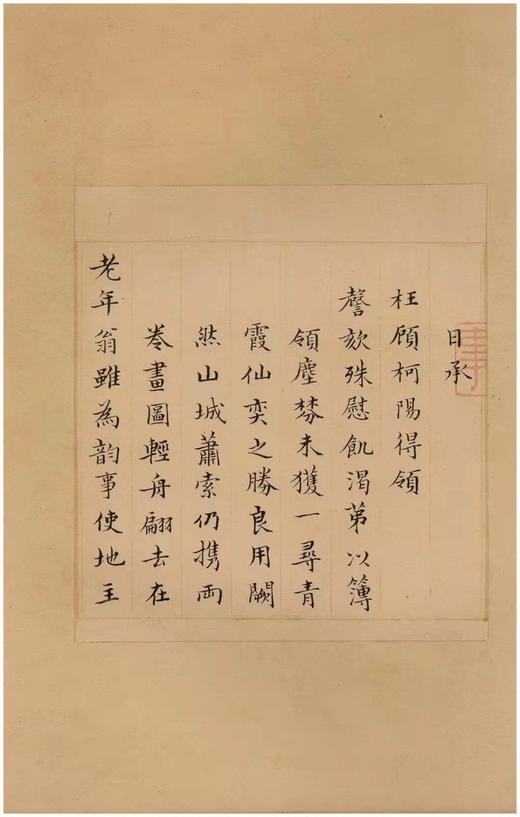 日承
枉顧柯陽得領
謦欬殊慰飢渴第以簿
領塵棼未獲一尋青
霞仙奕之勝良用闕
然山城蕭索仍携兩
卷畫圖輕舟翩去在
老年翁雖為韵事使地主